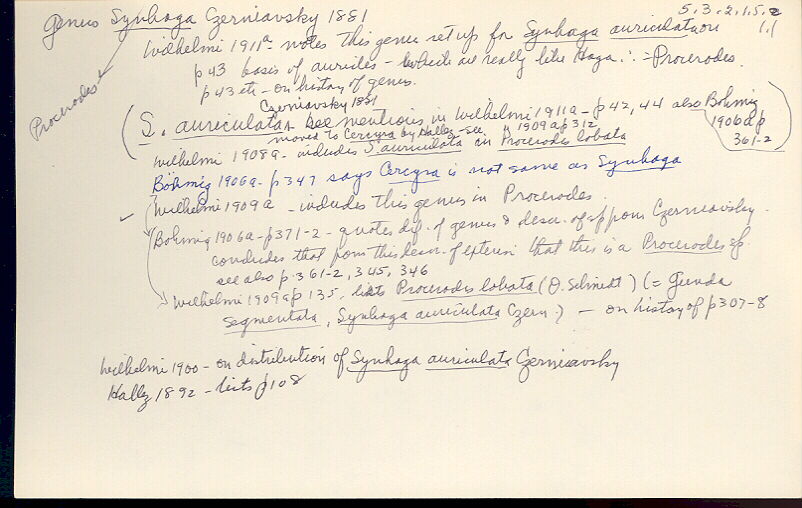 5.3.2.1.5.2
1.1
Genus Synhaga Czerniavsky 1881
Wilhelmi 1911a - notes this genus set up for Synhaga auriculata on
p 43 basis of auricles - which are really like Haga ∴ = Procerodes.
p 43 etc - on history of genus.
Procerodes
Czerniavsky 1881
(S. auriculata see mentions in Wilhelmi 1911a - p 42, 44 also Böhmig
1906a p
361-2)
moved to Cercyra by Hallez - see 1909a p 312
Wilhelmi 1908a - includes S. auriculata in Procerodes lobata
Böhmig 1906a - p 347 says Cercyra is not same as Synhaga
Wilhelmi 1909a - includes this genus in Procerodes.
Böhmig 1906a - p 371-2 - quotes def. of genus & descr. of sp from Czerniavsky.
concludes that from this descr. of exterior that this is a Procerodes sp.
see also p. 361-2, 345, 346
Wilhelmi 1909a p 135, lists Procerodes lobata (O. Schmidt) (= Gunda
segmentata, Synhaga auriculata Czern.) - on history of p 307-8
Wilhelmi 1900 - on distribution of Synhaga auriculata Czerniavsky
Hallez 1892 - lists p 108